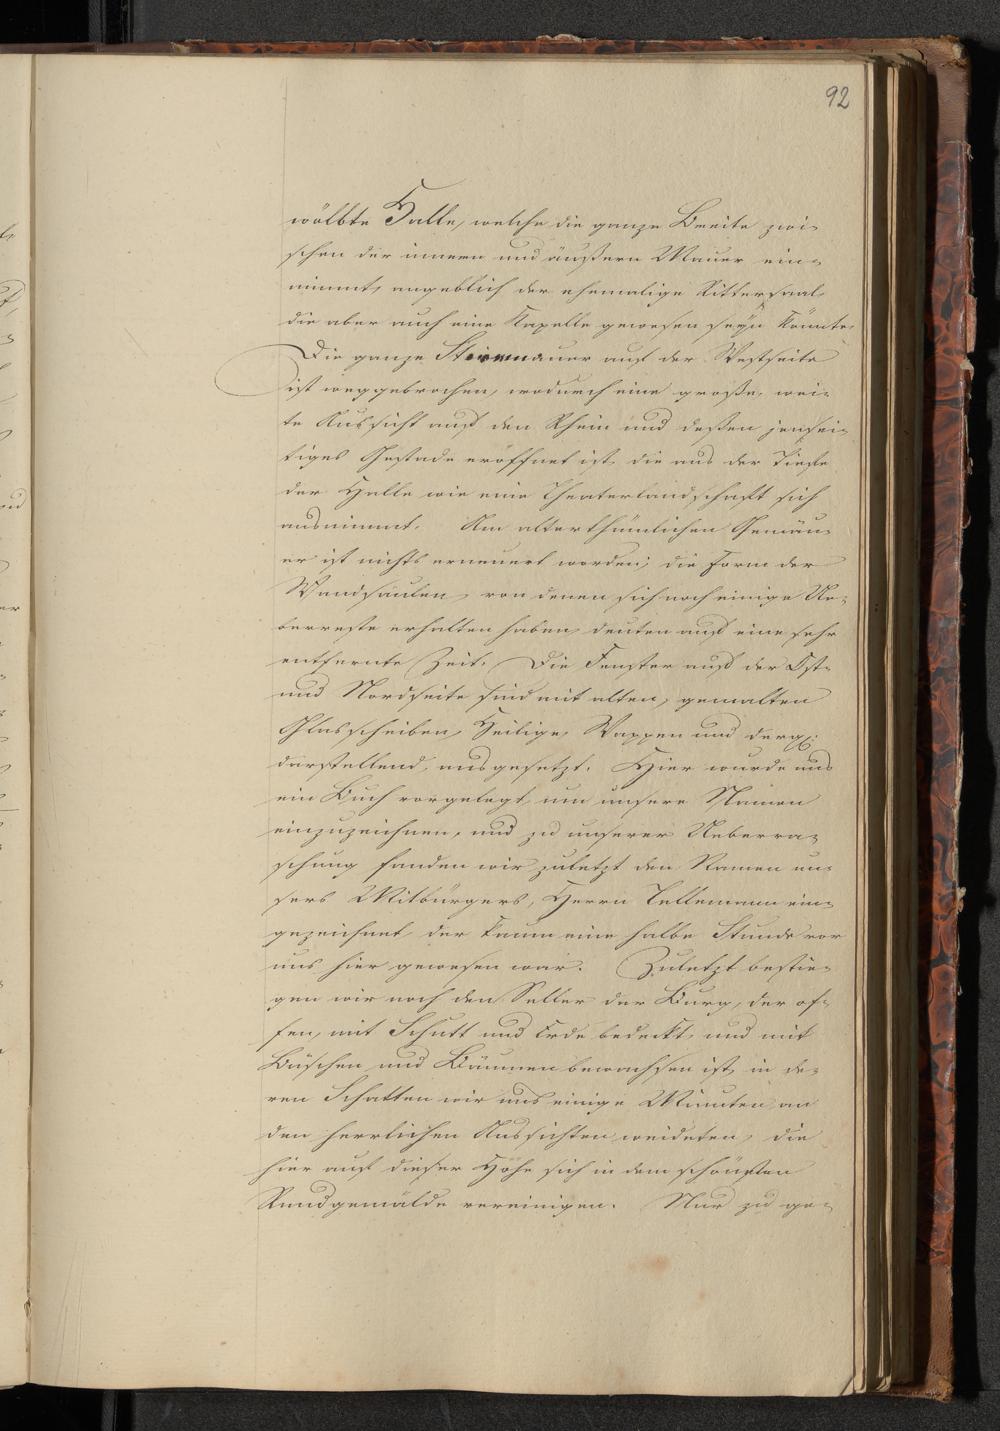 92
wölbte Halle, welche die ganze Breite zwi-
schen der innern und äußern Mauer ein-
nimmt, angeblich der ehemalige Rittersaal,
die aber auch eine Kapelle gewesen seyn könnte.
Die ganze Stirnmauer auf der Westseite
ist weggebrochen, wodurch eine große, wei-
te Aussicht auf den Rhein und deßen jensei-
tiges Gestade eröffnet ist, die aus der Tiefe
der Halle wie eine Theaterlandschaft sich
ausnimmt. Am alterthümlichen Gemäu-
er ist nichts erneuert worden; die Form der
Wandsäulen, von denen sich noch einige Ue-
berreste erhalten haben, deuten auf eine sehr
entfernte Zeit. Die Fenster auf der Ost-
und Nordseite sind mit alten, gemalten
Glasscheiben, Heilige, Wappen und dergl:
darstellend, ausgesetzt. Hier wurde uns
ein Buch vorgelegt, um unsere Namen
einzuzeichnen, und zu unserer Ueberra-
schung fanden wir zuletzt den Namen un-
sers Mitbürgers, Herrn Tellemann ein-
gezeichnet, der kaum eine halbe Stunde vor
uns hier gewesen war. Zuletzt bestie-
gen wir noch den Seller der Burg, der of-
fen, mit Schutt und Erde bedeckt, und mit
Büschen und Bäumen bewachsen ist, in de-
ren Schatten wir uns einige Minuten an
den herrlichen Aussichten weideten, die
hier auf dieser Höhe sich in dem schönsten
Rundgemälde vereinigen. Nur zu ge-